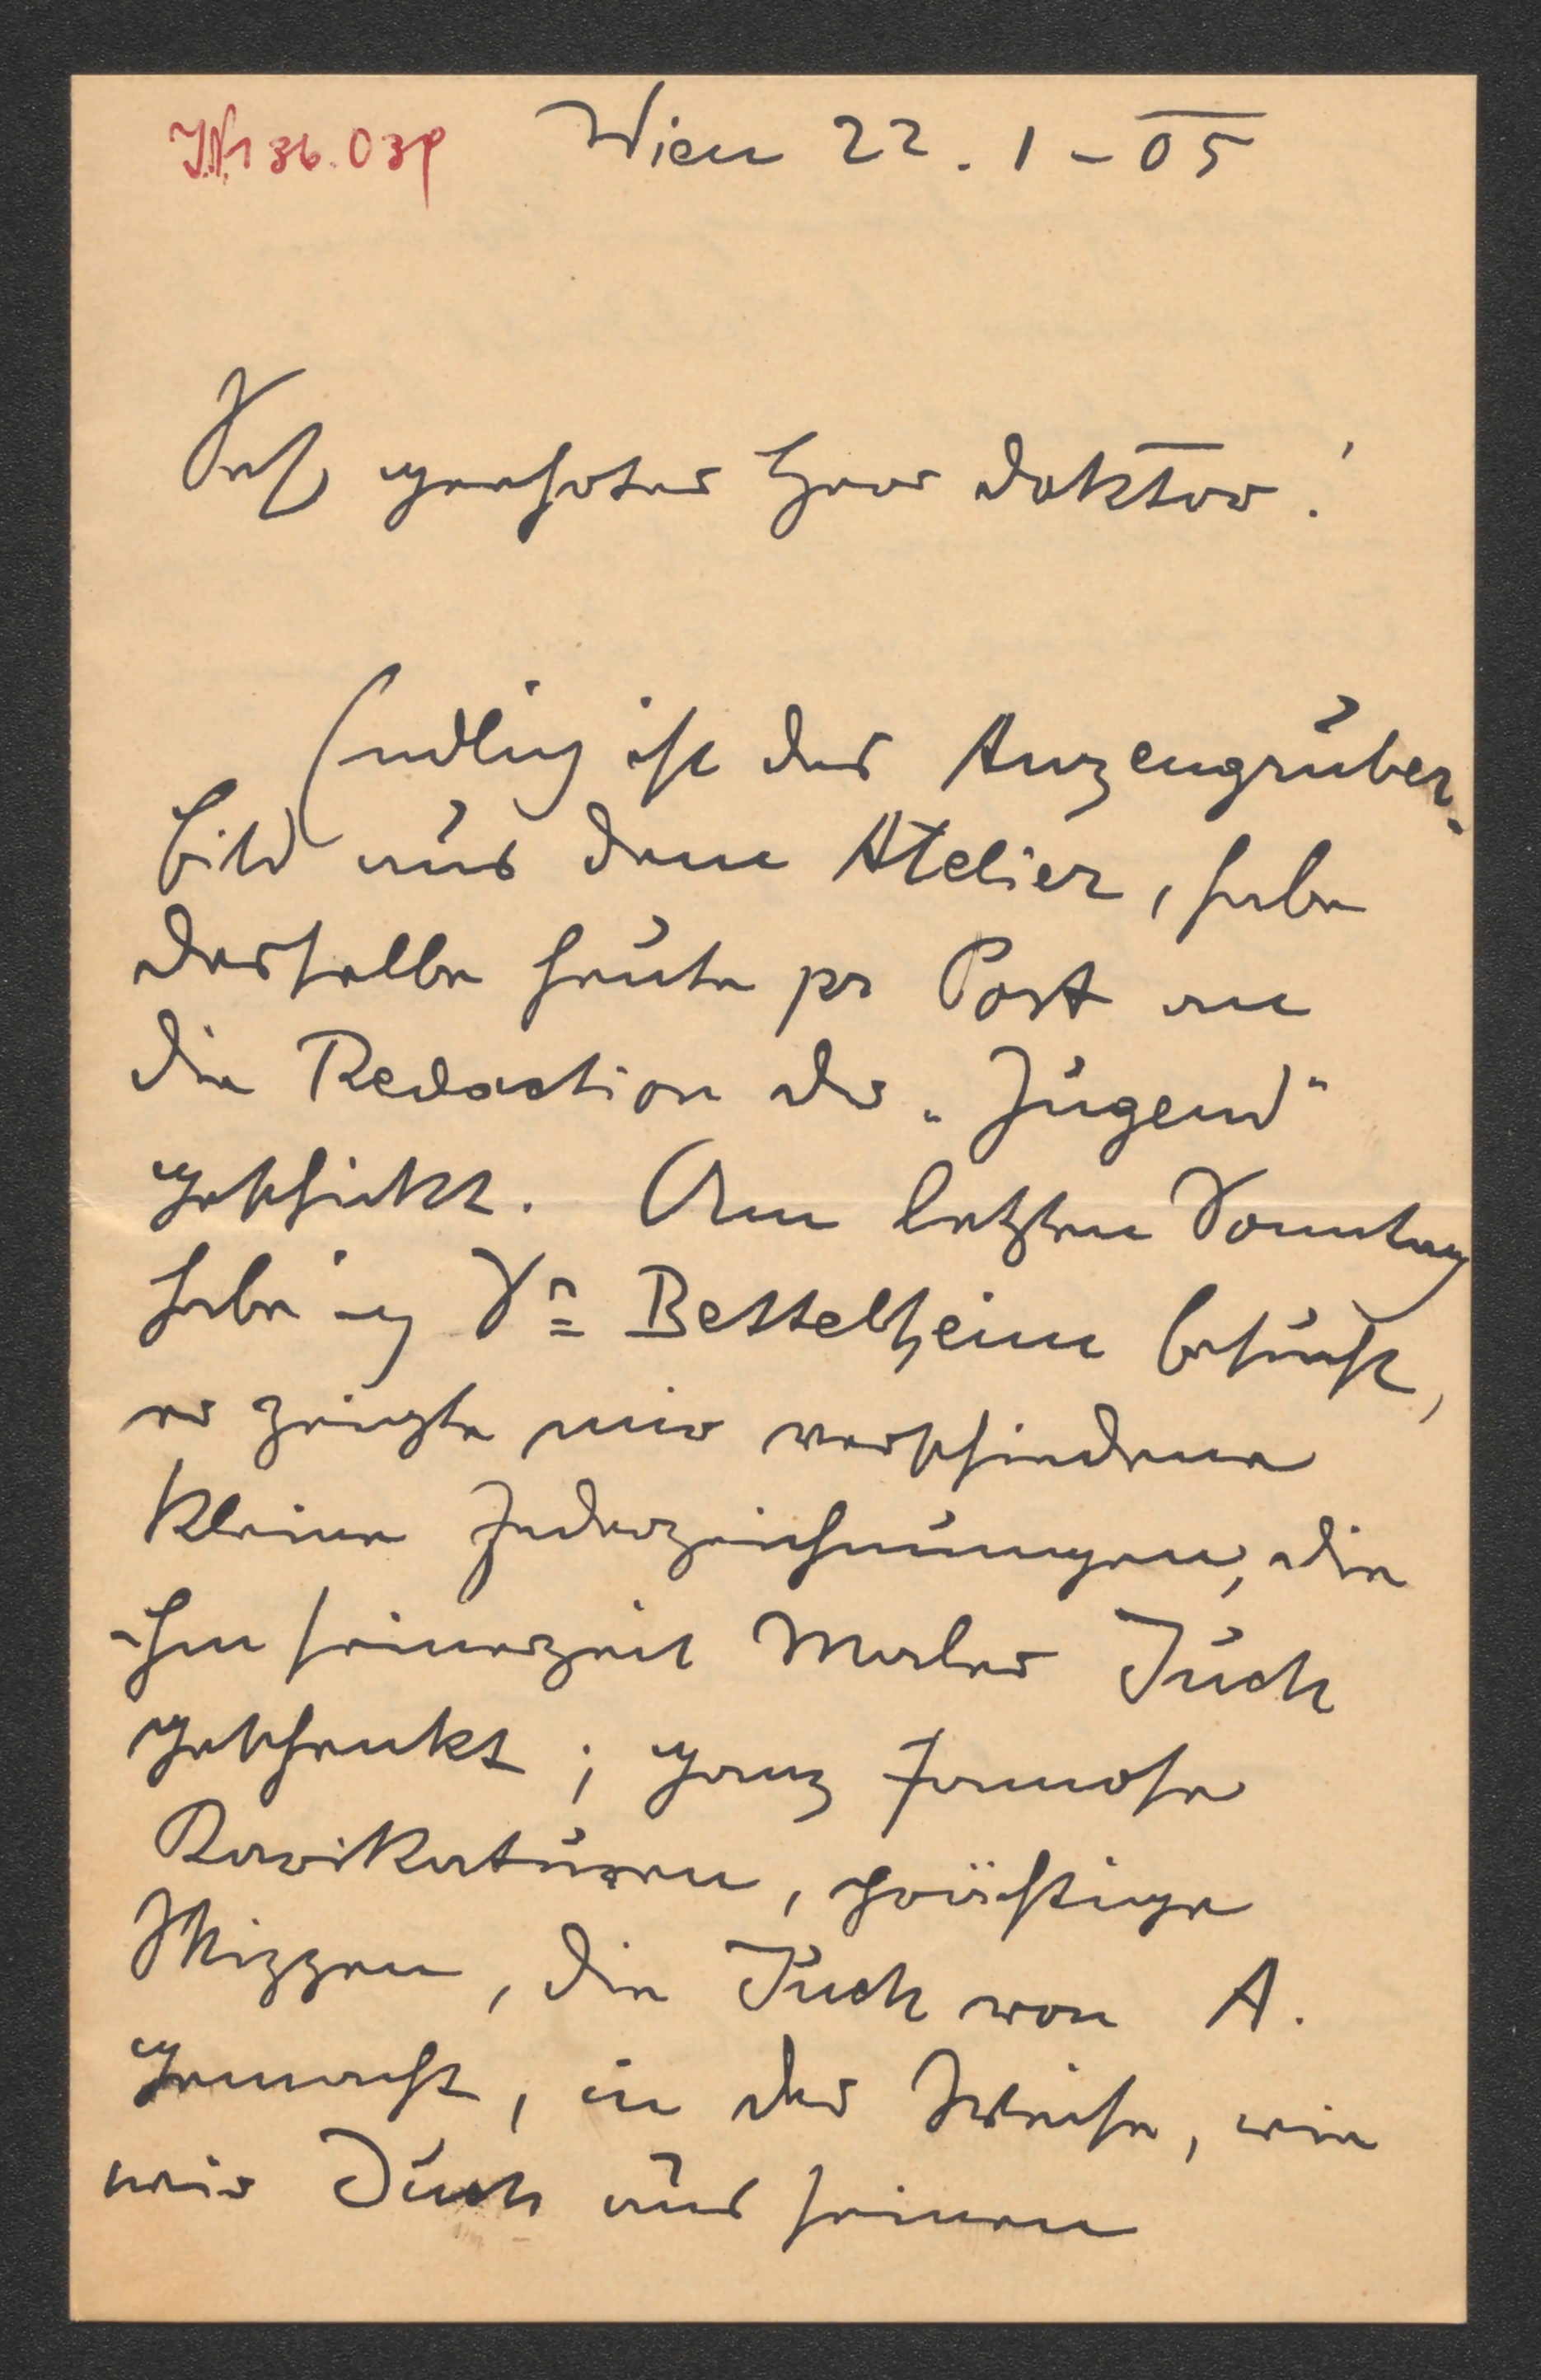 I.N. 136.039
Wien 22. 1 – 05
Sehr geehrter Herr Doktor!
Endlich ist das Anzengruber-
bild aus dem Atelier, habe
dasselbe heute pr Post an
die Redaction der „Jugend"
geschickt. Am letzten Sonntag
habe ich Dr. Bettelheim besucht,
er zeigte mir verschiedene
kleine Federzeichnungen, die
ihm seinerzeit Maler Juch
geschenkt; ganz famose
Karikaturen, geistige
Skizzen, die Juch von A.
gemacht, in der Weise, wie
wir Juch aus seinen